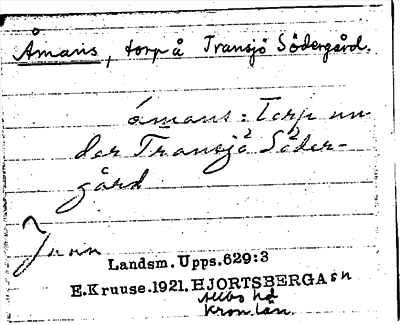 Åmans, torp å Transjö Södergård.
åmans: Torp un-
der Transjö Söder-
gård
Landsm. Upps. 629:3
E.Kruuse.1921. HJORTSBERGA sn
Allbo hd
Kron. län.